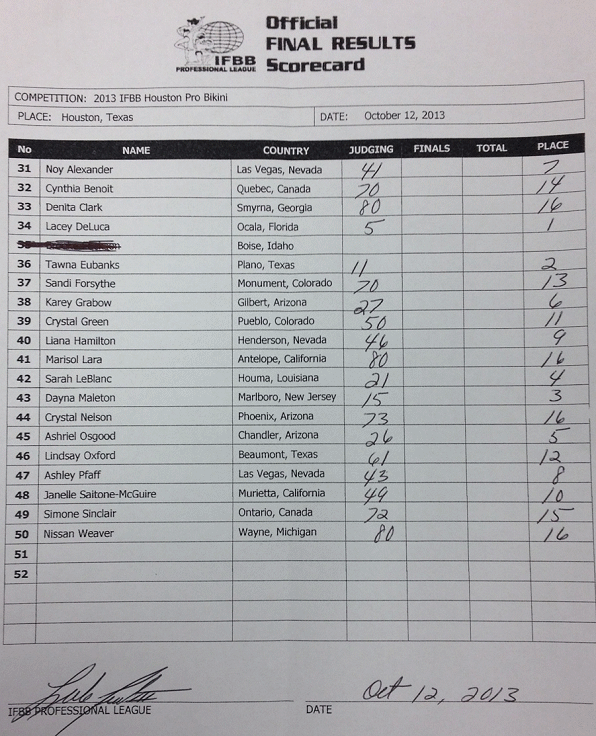 Official
FINAL RESULTS
Scorecard
IFBB
PROFESSIONAL LEAGUE
COMPETITION: 2013 IFBB Houston Pro Bikini
PLACE: Houston, Texas DATE: October 12, 2013
No NAME COUNTRY JUDGING FINALS TOTAL PLACE
31 Noy Alexander Las Vegas, Nevada 41 7
32 Cynthia Benoit Quebec, Canada 70 14
33 Denita Clark Smyrna, Georgia 80 16
34 Lacey DeLuca Ocala, Florida 5 1
35 Boise, Idaho
36 Tawna Eubanks Plano, Texas 11 2
37 Sandi Forsythe Monument, Colorado 70 13
38 Karey Grabow Gilbert, Arizona 27 6
39 Crystal Green Pueblo, Colorado 50 11
40 Liana Hamilton Henderson, Nevada 46 9
41 Marisol Lara Antelope, California 80 16
42 Sarah LeBlanc Houma, Louisiana 21 4
43 Dayna Maleton Marlboro, New Jersey 15 3
44 Crystal Nelson Phoenix, Arizona 73 16
45 Ashriel Osgood Chandler, Arizona 26 5
46 Lindsay Oxford Beaumont, Texas 61 12
47 Ashley Pfaff Las Vegas, Nevada 43 8
48 Janelle Saitone-McGuire Murietta, California 49 10
49 Simone Sinclair Ontario, Canada 72 15
50 Nissan Weaver Wayne, Michigan 80 16
51
52
Oct 12, 2013
IFBB PROFESSIONAL LEAGUE DATE